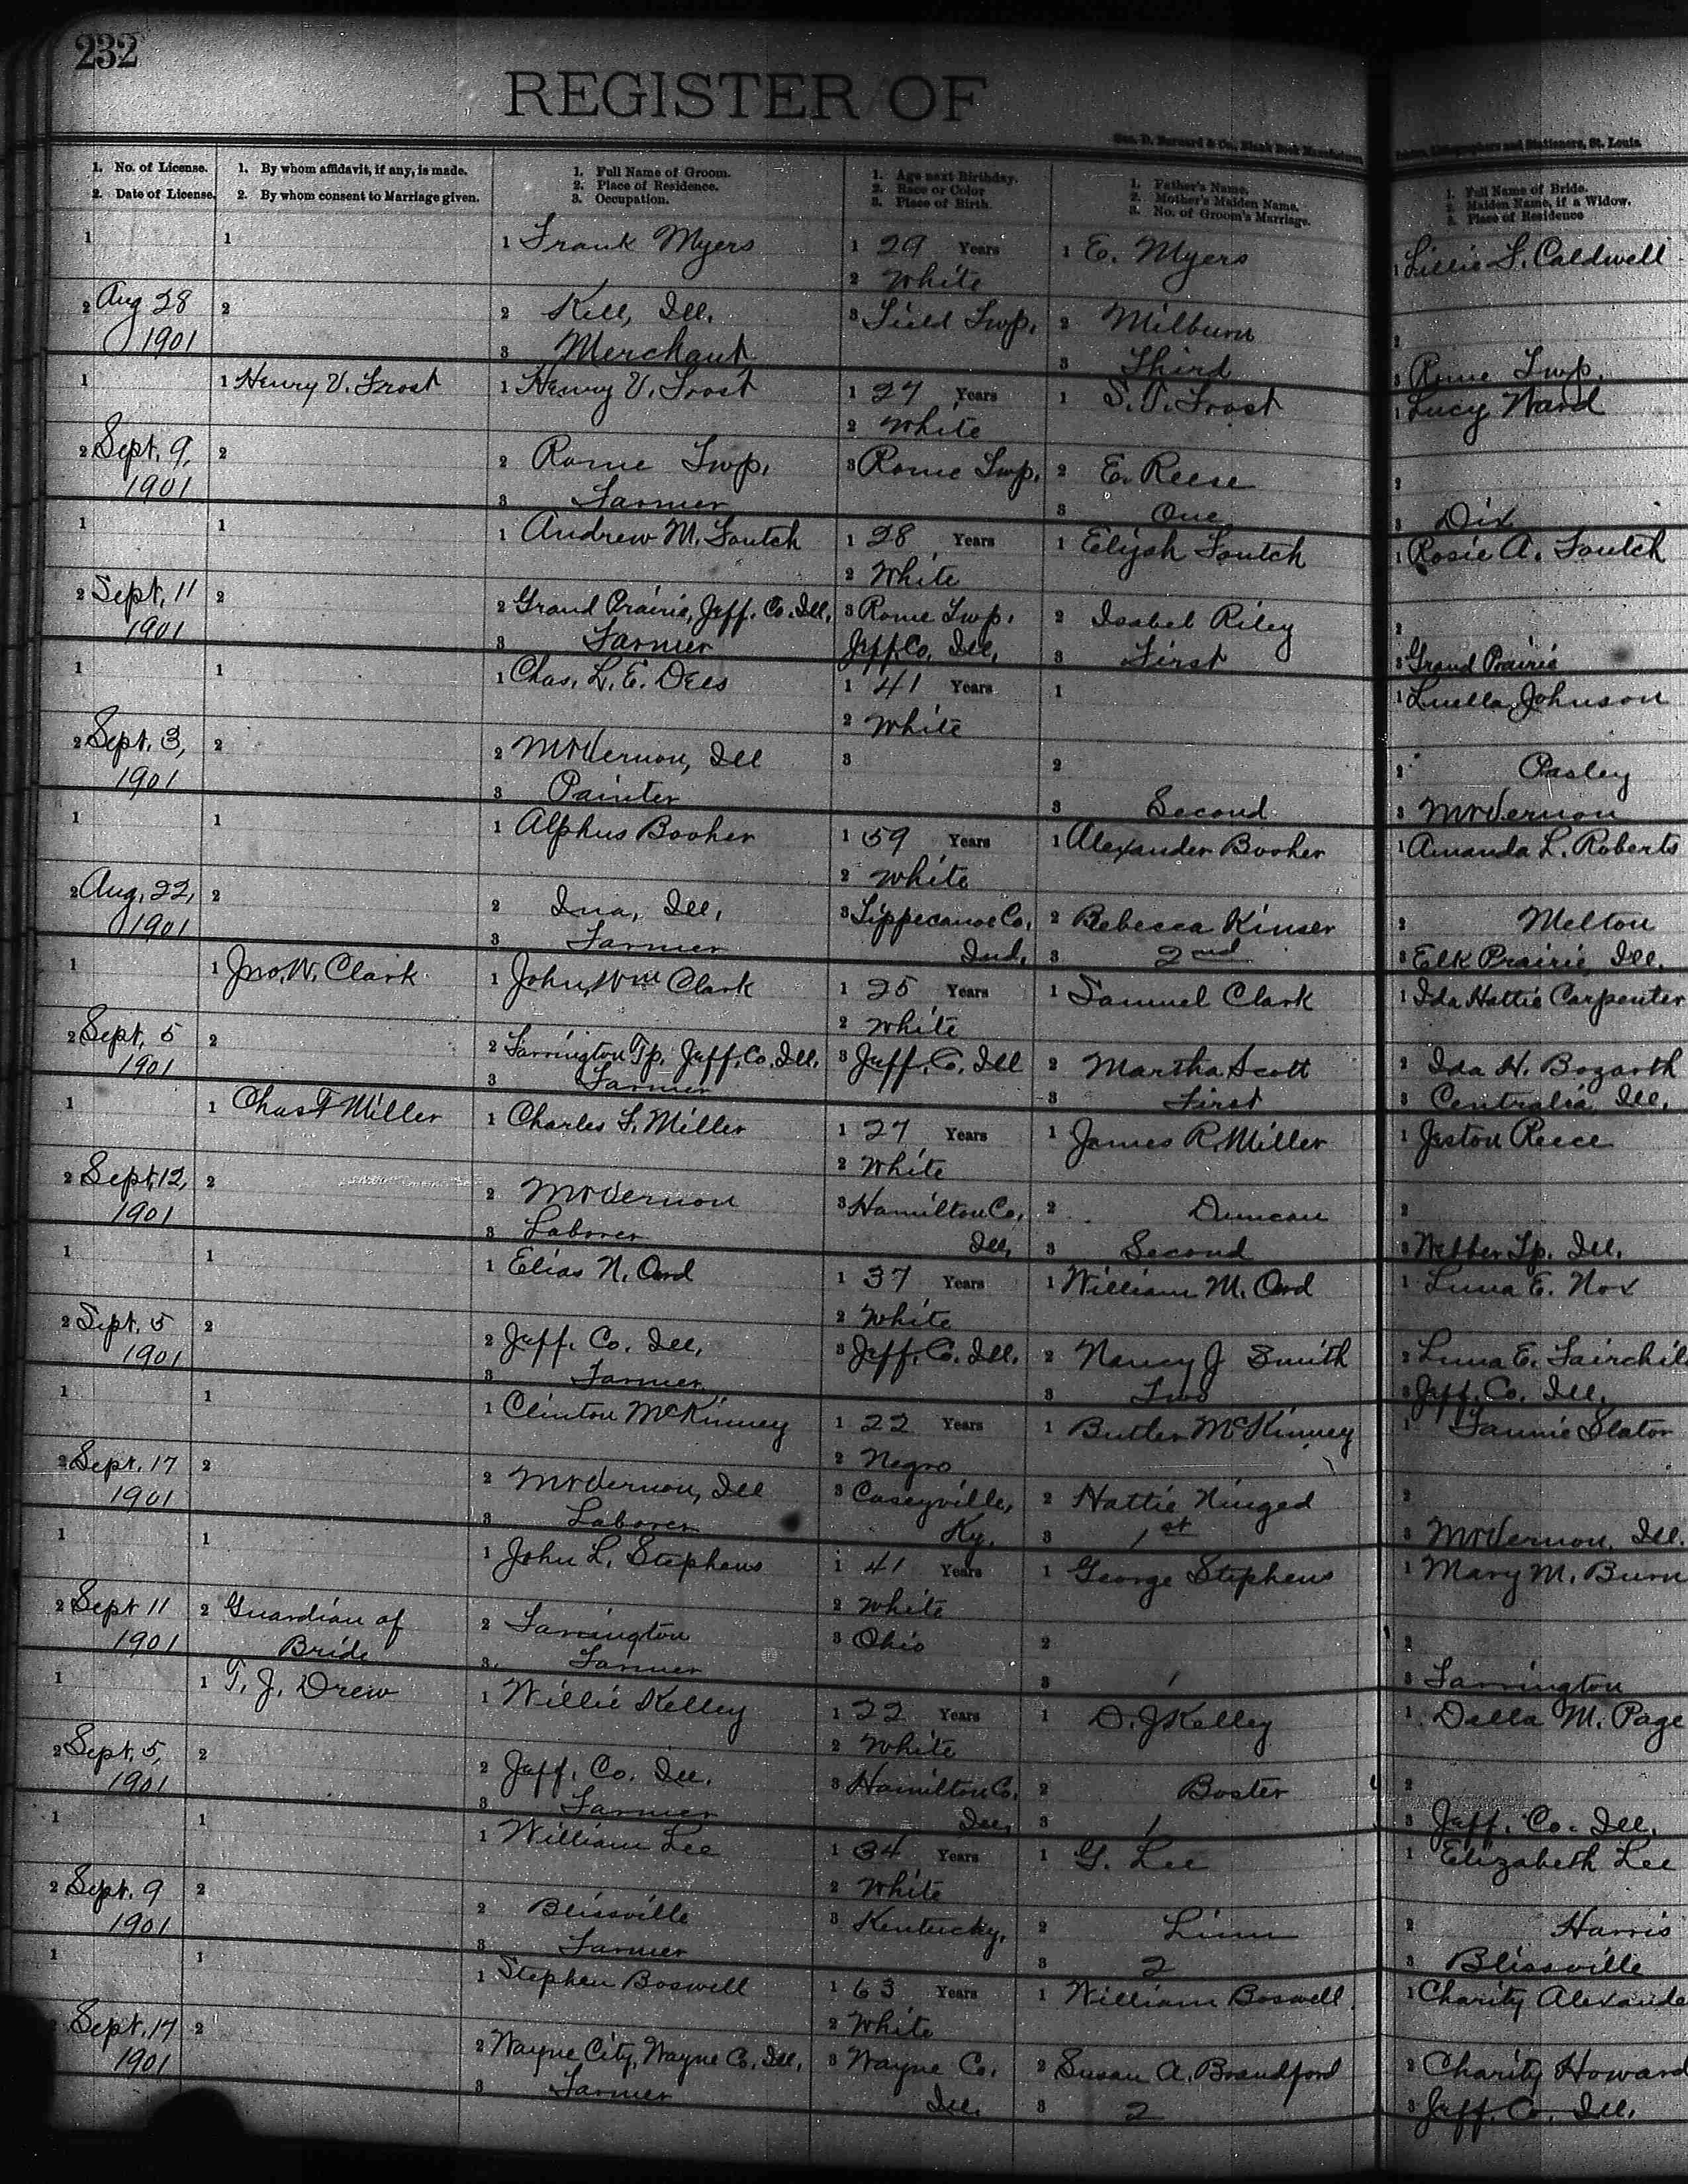 232
REGISTER OF
Geo. D. Barnard & Co., Blank Book Manufacturers,
Lithographers and Stationers, St. Louis.
1. No. of License.
2. Date of License.
1. By whom affidavit, if any, is made.
2. By whom consent to Marriage given.
1. Full Name of Groom.
2. Place of Residence.
3. Occupation.
1. Age next Birthday.
2. Race or Color
3. Place of Birth.
1. Father's Name.
2. Mother's Maiden Name.
3. No. of Groom's Marriage.
1. Full Name of Bride.
2. Maiden Name, if a Widow.
3. Place of Residence
1
2 Aug 28
1901
1
2
1 Frank Myers
2 Kell, Ill.
3 Merchant
1 29 Years
2 White
3 Field Twp.
1 E. Myers
2 Milburn
3 Third
1 Lillie F. Caldwell
2
3 Rome Twp.
1
2 Sept. 9,
1901
1 Henry V. Frost
2
1 Henry V. Frost
2 Rome Twp.
3 Farmer
1 27 Years
2 White
3 Rome Twp.
1 S. V. Frost
2 E. Reese
3 One
1 Lucy Ward
2
3 Dix
1
2 Sept. 11
1901
1
2
1 Andrew M. Foutch
2 Grand Prairie, Jeff. Co. Ill.
3 Farmer
1 28 Years
2 White
3 Rome Twp.
Jeff Co. Ill.
1 Elijah Foutch
2 Isabel Riley
3 First
1 Rosie A. Foutch
2
3 Grand Prairie
1
2 Sept. 3,
1901
1
2
1 Chas. L. E. Dees
2 Mt Vernon, Ill
3 Painter
1 41 Years
2 White
3
1
2
3 Second
1 Luella Johnson
2 Pasley
3 Mt Vernon
1
2 Aug. 22,
1901
1
2
1 Alphus Booher
2 Ina, Ill.
3 Farmer
1 59 Years
2 White
3 Tippecanoe Co.
Ind.
1 Alexander Booher
2 Rebecca Kinser
3 2nd
1 Amanda L. Roberts
2 Melton
3 Elk Prairie, Ill.
1
2 Sept. 5
1901
1 Jno. W. Clark
2
1 John, Wm Clark
2 Farrington Tp. Jeff. Co. Ill.
3 Farmer
1 25 Years
2 White
3 Jeff. Co. Ill
1 Samuel Clark
2 Martha Scott
3 First
1 Ida Hattie Carpenter
2 Ida H. Bozarth
3 Centralia, Ill.
1
2 Sept. 12,
1901
1 Chas F Miller
2
1 Charles F. Miller
2 Mt Vernon
3 Laborer
1 27 Years
2 White
3 Hamilton Co.
Ill.
1 James R. Miller
2 Duncan
3 Second
1 Jeston Reece
2
3 Webber Tp. Ill.
1
2 Sept. 5
1901
1
2
1 Elias N. Ord
2 Jeff. Co. Ill.
3 Farmer
1 37 Years
2 White
3 Jeff. Co. Ill.
1 William M. Ord
2 Nancy J Smith
3 Two
1 Luna E. Nox
2 Luna E. Fairchil
3 Jeff. Co. Ill.
1
2 Sept. 17
1901
1
2
1 Clinton McKinney
2 Mt Vernon, Ill
3 Laborer
1 22 Years
2 Negro
3 Caseyville,
Ky.
1 Butler McKinney
2 Hattie Ninged
3 1st
1 Fannie Slator
2
3 Mt Vernon, Ill.
1
2 Sept 11
1901
1
2 Guardian of
Bride
1 John L. Stephens
2 Farrington
3 Farmer
1 41 Years
2 White
3 Ohio
1 George Stephens
2
3 1
1 Mary M. Burn
2
3 Farrington
1
2 Sept. 5,
1901
1 T. J. Drew
2
1 Willie Kelley
2 Jeff. Co. Ill.
3 Farmer
1 22 Years
2 White
3 Hamilton Co.
Ill.
1 D. J Kelley
2 Boster
3 1
1 Della M. Page
2
3 Jeff. Co. Ill.
1
2 Sept. 9
1901
1
2
1 William Lee
2 Blissville
3 Farmer
1 34 Years
2 White
3 Kentucky,
1 G. Lee
2 Linn
3 2
1 Elizabeth Lee
2 Harris
3 Blissville
1
2 Sept. 17
1901
1
2
1 Stephen Boswell
2 Wayne City, Wayne Co, Ill.
3 Farmer
1 63 Years
2 White
3 Wayne Co.
Ill.
1 William Boswell
2 Susan A. Brandford
3 2
1 Charity Alexande
2 Charity Howard
3 Jeff. Co. Ill.